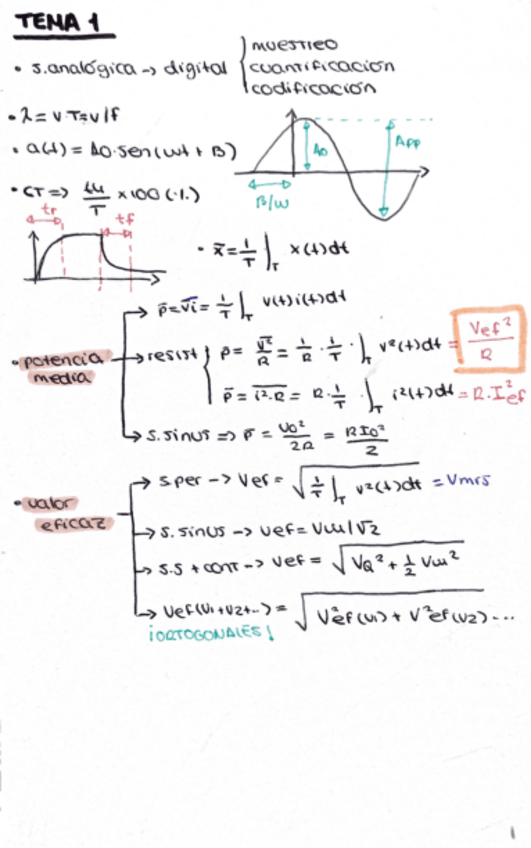 TEMA 1
• s.analógica -> digital { muestreo
cuantificación
codificación
• λ = v·T = v/f
• a(t) = A0·sen(wt + B)
A0
App
B/w
• CT => tu/T x100 (%)
tr
tf
• x̄ = 1/T ∫T x(t)dt
• potencia media
p̄ = v̄i̅ = 1/T ∫T v(t)i(t)dt
resist { p̄ = v̅²/R = 1/R · 1/T · ∫T v²(t)dt = Vef²/R
p̄ = i̅²·R̅ = R·1/T · ∫T i²(t)dt = R·I²ef
s.sinus => p̄ = V0²/2R = RI0²/2
• valor eficaz
s.per -> Vef = √(1/T ∫T v²(t)dt) = Vmrs
s.sinus -> Vef = Vm/√2
s.s + cont -> Vef = √(VQ² + 1/2 Vm²)
Vef(v1+v2+..) = √(V²ef(v1) + V²ef(v2)...
¡ORTOGONALES!
1